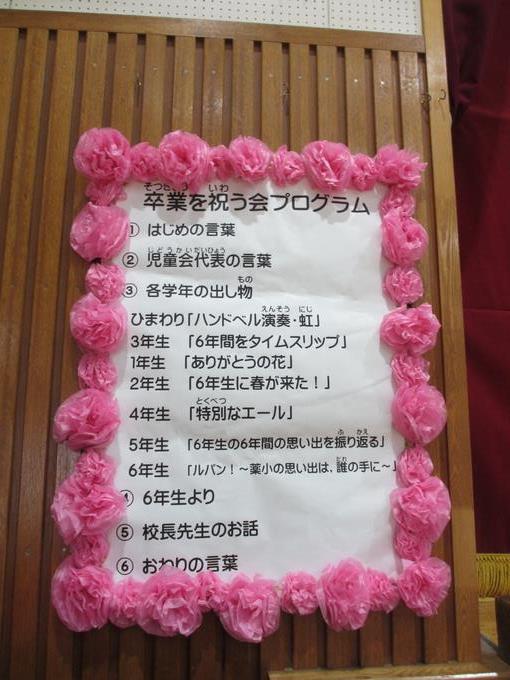 そつぎょう いわ
卒業を祝う会プログラム
① はじめの言葉
じどうかいだいひょう
② 児童会代表の言葉
もの
③ 各学年の出し物
えんそう にじ
ひまわり「ハンドベル演奏・虹」
3年生 「6年間をタイムスリップ」
1年生 「ありがとうの花」
2年生 「6年生に春が来た!」
とくべつ
4年生 「特別なエール」
ふ かえ
5年生 「6年生の6年間の思い出を振り返る」
だれ
6年生 「ルパン!~薬小の思い出は、誰の手に~」
④ 6年生より
⑤ 校長先生のお話
⑥ おわりの言葉